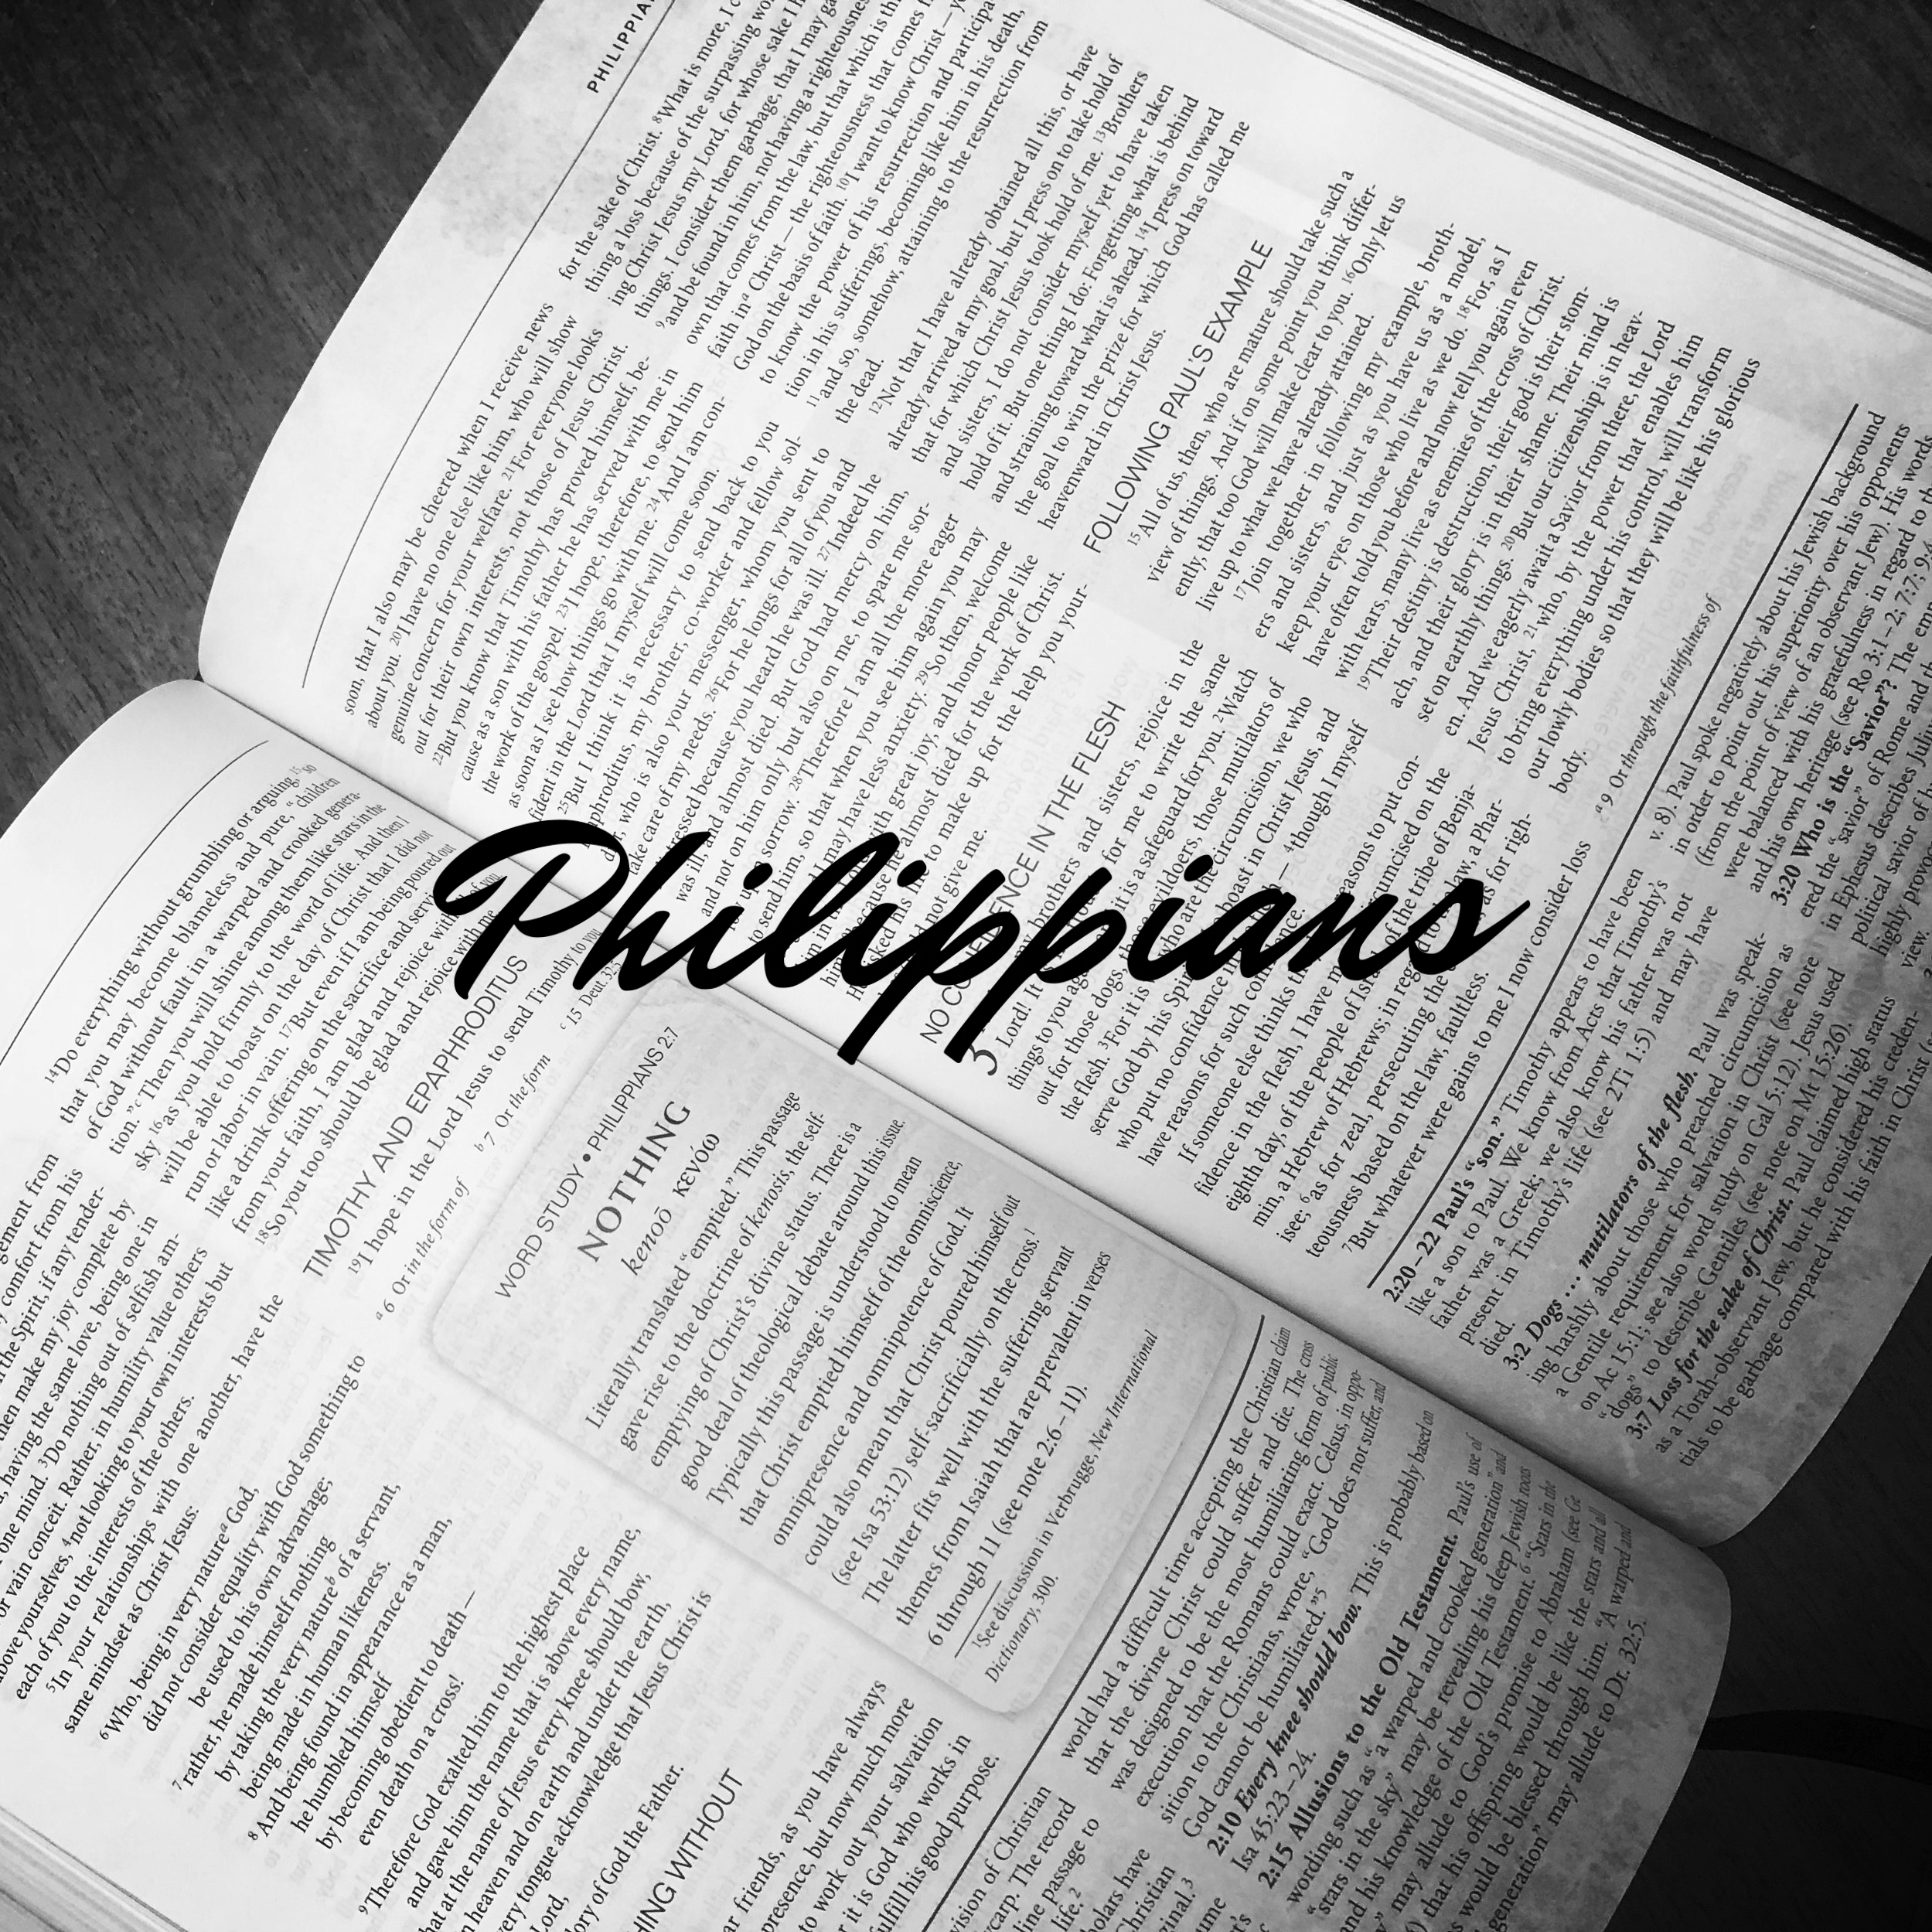 Philippians
gement from
comfort from his
the Spirit, if any tender-
then make my joy complete by
having the same love, being one in
one mind. 3Do nothing out of selfish am-
or vain conceit. Rather, in humility value others
above yourselves, 4not looking to your own interests but
each of you to the interests of the others.
5In your relationships with one another, have the
same mindset as Christ Jesus:
6Who, being in very nature a God,
did not consider equality with God something to
be used to his own advantage;
7rather, he made himself nothing
by taking the very nature b of a servant,
being made in human likeness.
8And being found in appearance as a man,
he humbled himself
by becoming obedient to death —
even death on a cross!
9Therefore God exalted him to the highest place
and gave him the name that is above every name,
that at the name of Jesus every knee should bow,
in heaven and on earth and under the earth,
every tongue acknowledge that Jesus Christ is
Lord,
glory of God the Father.
HING WITHOUT
ar friends, as you have always
presence, but now much more
to work out your salvation
r it is God who works in
ulfill his good purpose.
14Do everything without grumbling or arguing, 15so
that you may become blameless and pure, “children
of God without fault in a warped and crooked genera-
tion.” c Then you will shine among them like stars in the
sky 16as you hold firmly to the word of life. And then I
will be able to boast on the day of Christ that I did not
run or labor in vain. 17But even if I am being poured out
like a drink offering on the sacrifice and service
from your faith, I am glad and rejoice with of you
18So you too should be glad and rejoice with me
TIMOTHY AND EPAPHRODITUS
19I hope in the Lord Jesus to send Timothy to you
a 6 Or in the form of
b 7 Or the form
c 15 Deut. 32:5
WORD STUDY • PHILIPPIANS 2:7
NOTHING
kenoō κενόω
Literally translated “emptied.” This passage
gave rise to the doctrine of kenosis, the self-
emptying of Christ’s divine status. There is a
good deal of theological debate around this issue.
Typically this passage is understood to mean
that Christ emptied himself of the omniscience,
omnipresence and omnipotence of God. It
could also mean that Christ poured himself out
(see Isa 53:12) self-sacrificially on the cross.1
The latter fits well with the suffering servant
themes from Isaiah that are prevalent in verses
6 through 11 (see note 2:6–11).
1See discussion in Verbrugge, New International
Dictionary, 300.
vision of Christian
ycarp. The record
line passage to
life.2
holars have
Christian
rinal.3
world had a difficult time accepting the Christian claim
that the divine Christ could suffer and die. The cross
was designed to be the most humiliating form of public
execution that the Romans could exact. Celsus, in oppo-
sition to the Christians, wrote, “God does not suffer, and
God cannot be humiliated.”5
2:10 Every knee should bow. This is probably based on
Isa 45:23–24.
2:15 Allusions to the Old Testament. Paul’s use of
wording such as “a warped and crooked generation” and
“stars in the sky” may be revealing his deep Jewish roots
and his knowledge of the Old Testament.6 “Stars in the
sky” may allude to God’s promise to Abraham (see Ge
that his offspring would be like the stars and all
would be blessed through him. “A warped and
generation” may allude to Dt 32:5.
PHILIPPIA
soon, that I also may be cheered when I receive news
about you. 20I have no one else like him, who will show
genuine concern for your welfare. 21For everyone looks
out for their own interests, not those of Jesus Christ.
22But you know that Timothy has proved himself, be-
cause as a son with his father he has served with me in
the work of the gospel. 23I hope, therefore, to send him
as soon as I see how things go with me. 24And I am con-
fident in the Lord that I myself will come soon.
25But I think it is necessary to send back to you
phroditus, my brother, co-worker and fellow sol-
who is also your messenger, whom you sent to
take care of my needs. 26For he longs for all of you and
tressed because you heard he was ill. 27Indeed he
was ill, and almost died. But God had mercy on him,
and not on him only but also on me, to spare me sor-
sorrow. 28Therefore I am all the more eager
to send him, so that when you see him again you may
may have less anxiety. 29So then, welcome
with great joy, and honor people like
because almost died for the work of Christ.
to make up for the help you your-
not give me.
NO CONFIDENCE IN THE FLESH
3 brothers and sisters, rejoice in the
Lord! It for me to write the same
things to you it is a safeguard for you. 2Watch
out for those dogs, those mutilators of
the flesh. 3For it is the circumcision, we who
serve God by his boast in Christ Jesus, and
who put no confidence — 4though I myself
have reasons for such
If someone else thinks reasons to put con-
fidence in the flesh, I have circumcised on the
eighth day, of the people of of the tribe of Benja-
min, a Hebrew of Hebrews; in law, a Phar-
isee; 6as for zeal, persecuting the as for righ-
teousness based on the law, faultless.
7But whatever were gains to me I now consider loss
for the sake of Christ. 8What is more, I c
thing a loss because of the surpassing wo
ing Christ Jesus my Lord, for whose sake I h
things. I consider them garbage, that I may ga
9and be found in him, not having a righteousness
own that comes from the law, but that which is th
faith in a Christ — the righteousness that comes f
God on the basis of faith. 10I want to know Christ — y
to know the power of his resurrection and participa
tion in his sufferings, becoming like him in his death,
11and so, somehow, attaining to the resurrection from
the dead.
12Not that I have already obtained all this, or have
already arrived at my goal, but I press on to take hold of
that for which Christ Jesus took hold of me. 13Brothers
and sisters, I do not consider myself yet to have taken
hold of it. But one thing I do: Forgetting what is behind
and straining toward what is ahead, 14I press on toward
the goal to win the prize for which God has called me
heavenward in Christ Jesus.
FOLLOWING PAUL’S EXAMPLE
15All of us, then, who are mature should take such a
view of things. And if on some point you think differ-
ently, that too God will make clear to you. 16Only let us
live up to what we have already attained.
17Join together in following my example, broth-
ers and sisters, and just as you have us as a model,
keep your eyes on those who live as we do. 18For, as I
have often told you before and now tell you again even
with tears, many live as enemies of the cross of Christ.
19Their destiny is destruction, their god is their stom-
ach, and their glory is in their shame. Their mind is
set on earthly things. 20But our citizenship is in heav-
en. And we eagerly await a Savior from there, the Lord
Jesus Christ, 21who, by the power that enables him
to bring everything under his control, will transform
our lowly bodies so that they will be like his glorious
body.
a 9 Or through the faithfulness of
2:20–22 Paul’s “son.” Timothy appears to have been
like a son to Paul. We know from Acts that Timothy’s
father was a Greek; we also know his father was not
present in Timothy’s life (see 2Ti 1:5) and may have
died.
3:2 Dogs … mutilators of the flesh. Paul was speak-
ing harshly about those who preached circumcision as
a Gentile requirement for salvation in Christ (see note
on Ac 15:1; see also word study on Gal 5:12). Jesus used
“dogs” to describe Gentiles (see note on Mt 15:26).
3:7 Loss for the sake of Christ. Paul claimed high status
as a Torah-observant Jew, but he considered his creden-
tials to be garbage compared with his faith in Christ
v. 8). Paul spoke negatively about his Jewish background
in order to point out his superiority over his opponents
(from the point of view of an observant Jew). His words
were balanced with his gratefulness in regard to
and his own heritage (see Ro 3:1–2; 7:7; 9:4
3:20 Who is the “Savior”? The emp
ered the “savior” of Rome and
in Ephesus describes Juli
political savior of
highly prov
view.